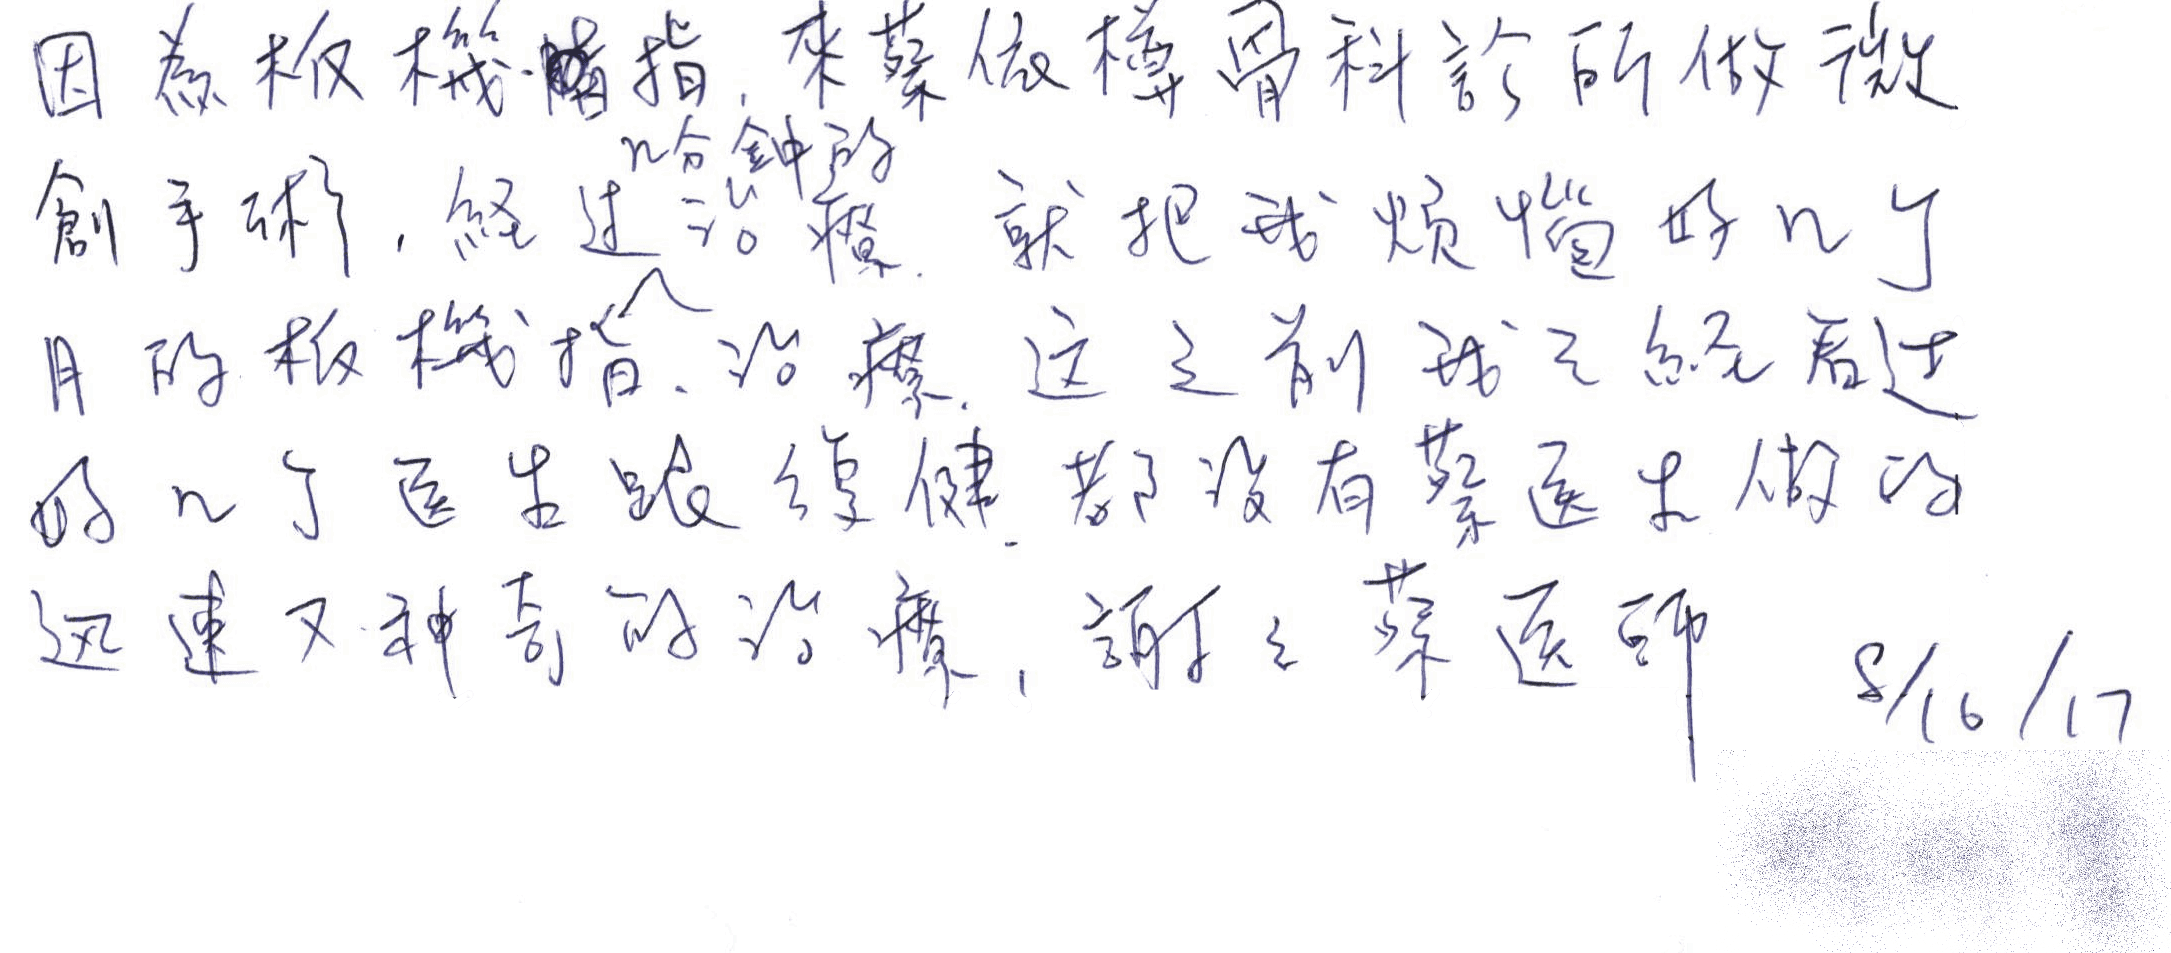 因為板機指,來蔡依樽骨科診所做微
n分鐘的
創手術,経过治療.就把我煩惱好n个
月的板機指、治療.这之前我已経看过
好n个医生跟復健.都没有蔡医生做的
迅速又神奇的治療,謝々蔡医師
8/16/17